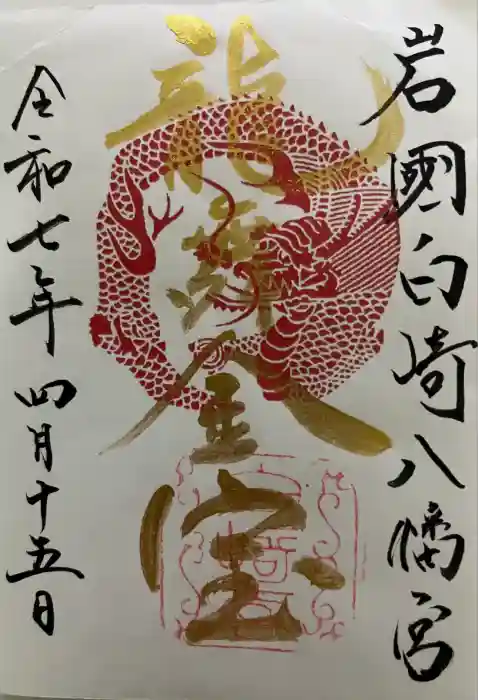 岩國白崎八幡宮
龍金宝
令和七年四月十五日